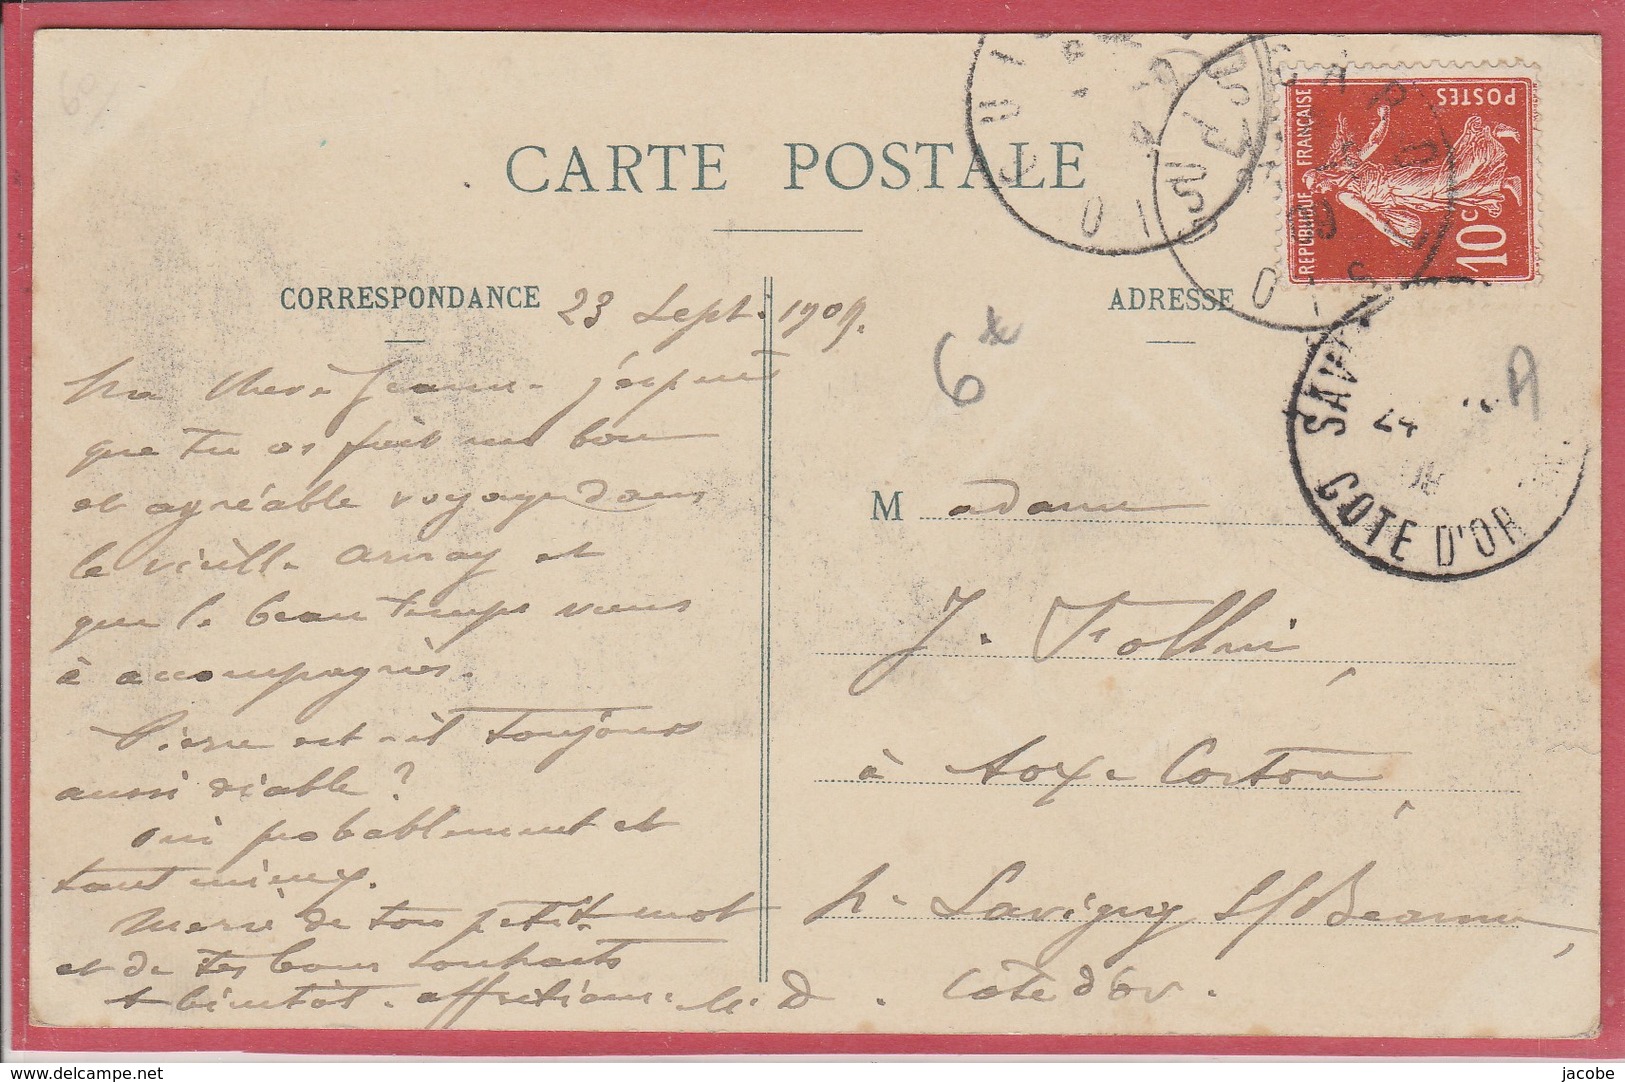 CARTE POSTALE
CORRESPONDANCE
23 Sept. 1909.
Ma chère Jeanne. j'espère
que tu as fait un bon
et agréable voyage dans
le vieille Arnay et
que le beau temps vous
à accompagnés.
Pierre est-il toujours
aussi diable?
oui probablement et
tant mieux.
Merci de ton petit mot
et de tes bons souhaits
A bientôt. affection.
ADRESSE
Madame
J. Follin,
à Aloxe Corton,
p. Savigny S/ Beaune,
Côte d'Or.
REPUBLIQUE FRANÇAISE
POSTES
10c
OISE
SAV
24
COTE D'OR
6
A
jacobe
www.delcampe.net